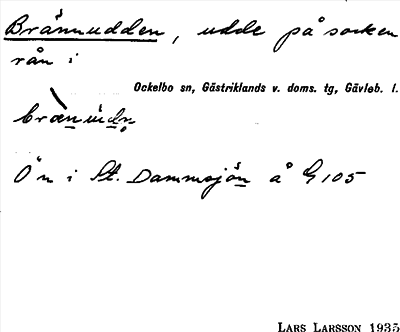 Brännudden, udde på socken
rån i
Ockelbo sn, Gästriklands v. doms. tg, Gävleb. l.
Ön i St. Dammsjön å G 105
LARS LARSSON 1935